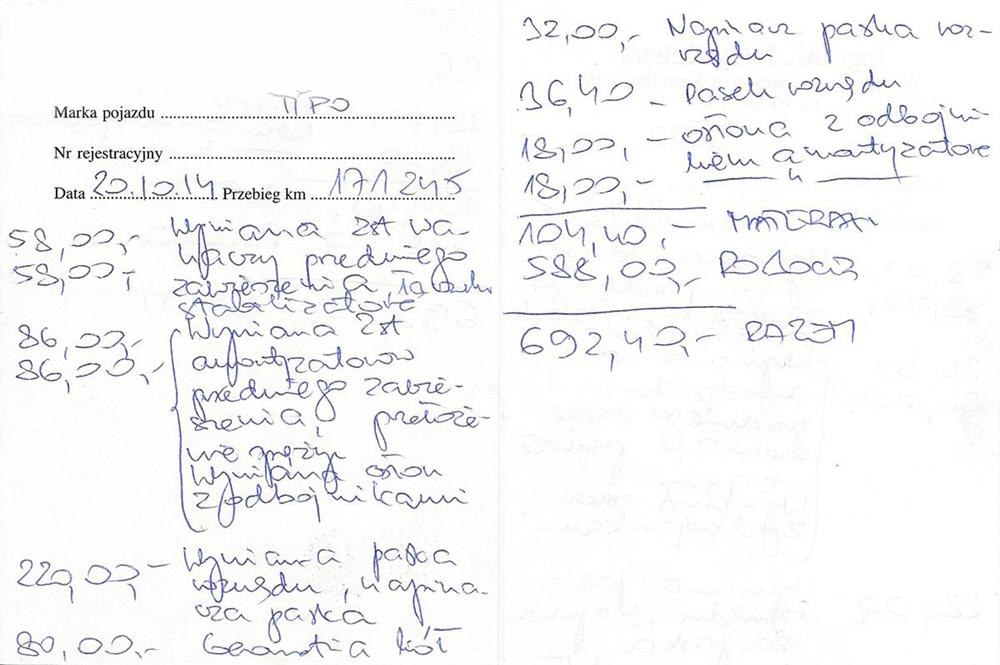 Marka pojazdu TIPO
Nr rejestracyjny
Data 20.10.14 Przebieg km 171245
58,00,- Wymiana zst wa-
58,00,- haczy przedniego
zawieszenia, łączniki
stabilizatora
86,00,- Wymiana zst
86,00,- amortyzatorów
przedniego zawie-
szenia, przełoże-
nie sprężyn
wymiana osłon
z odbojnikami
220,00,- Wymiana paska
rozrządu, napina-
cza paska
80,00.- Geometria kół
32,00,- Napinacz paska roz-
rządu
36,40 - Pasek rozrządu
18,00,- osłona z odbojni-
kiem amortyzatora
18,00,- — 〃 —
104,40,- MATERIAŁ
588,00,- ROBOCIZ
692,40,- RAZEM